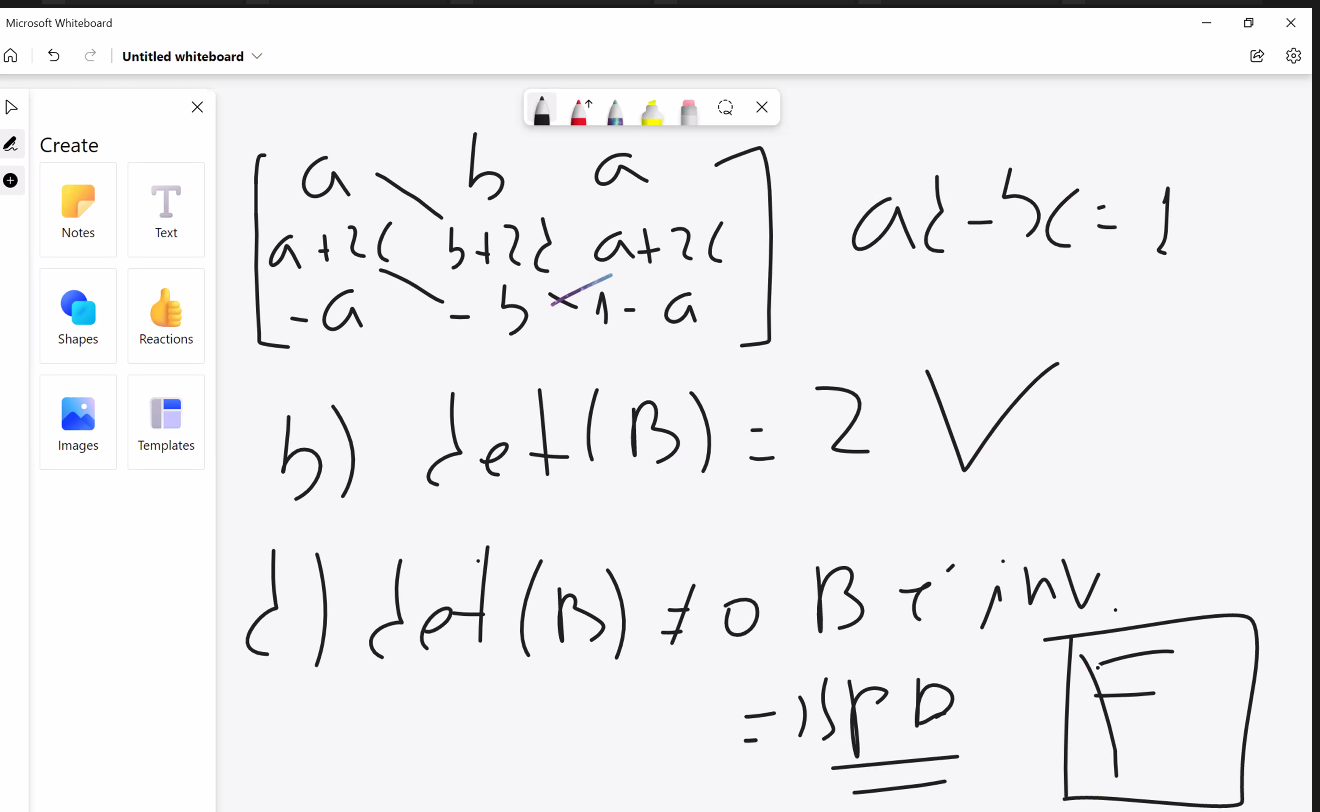 Microsoft Whiteboard
Untitled whiteboard
Create
Notes
Text
Shapes
Reactions
Images
Templates
a b a
a+2c b+2d a+2c
-a -b 1-a
ad-bc=1
b) det(B)=2 V
d) det(B)≠0 B é inv.
=)SPD
F